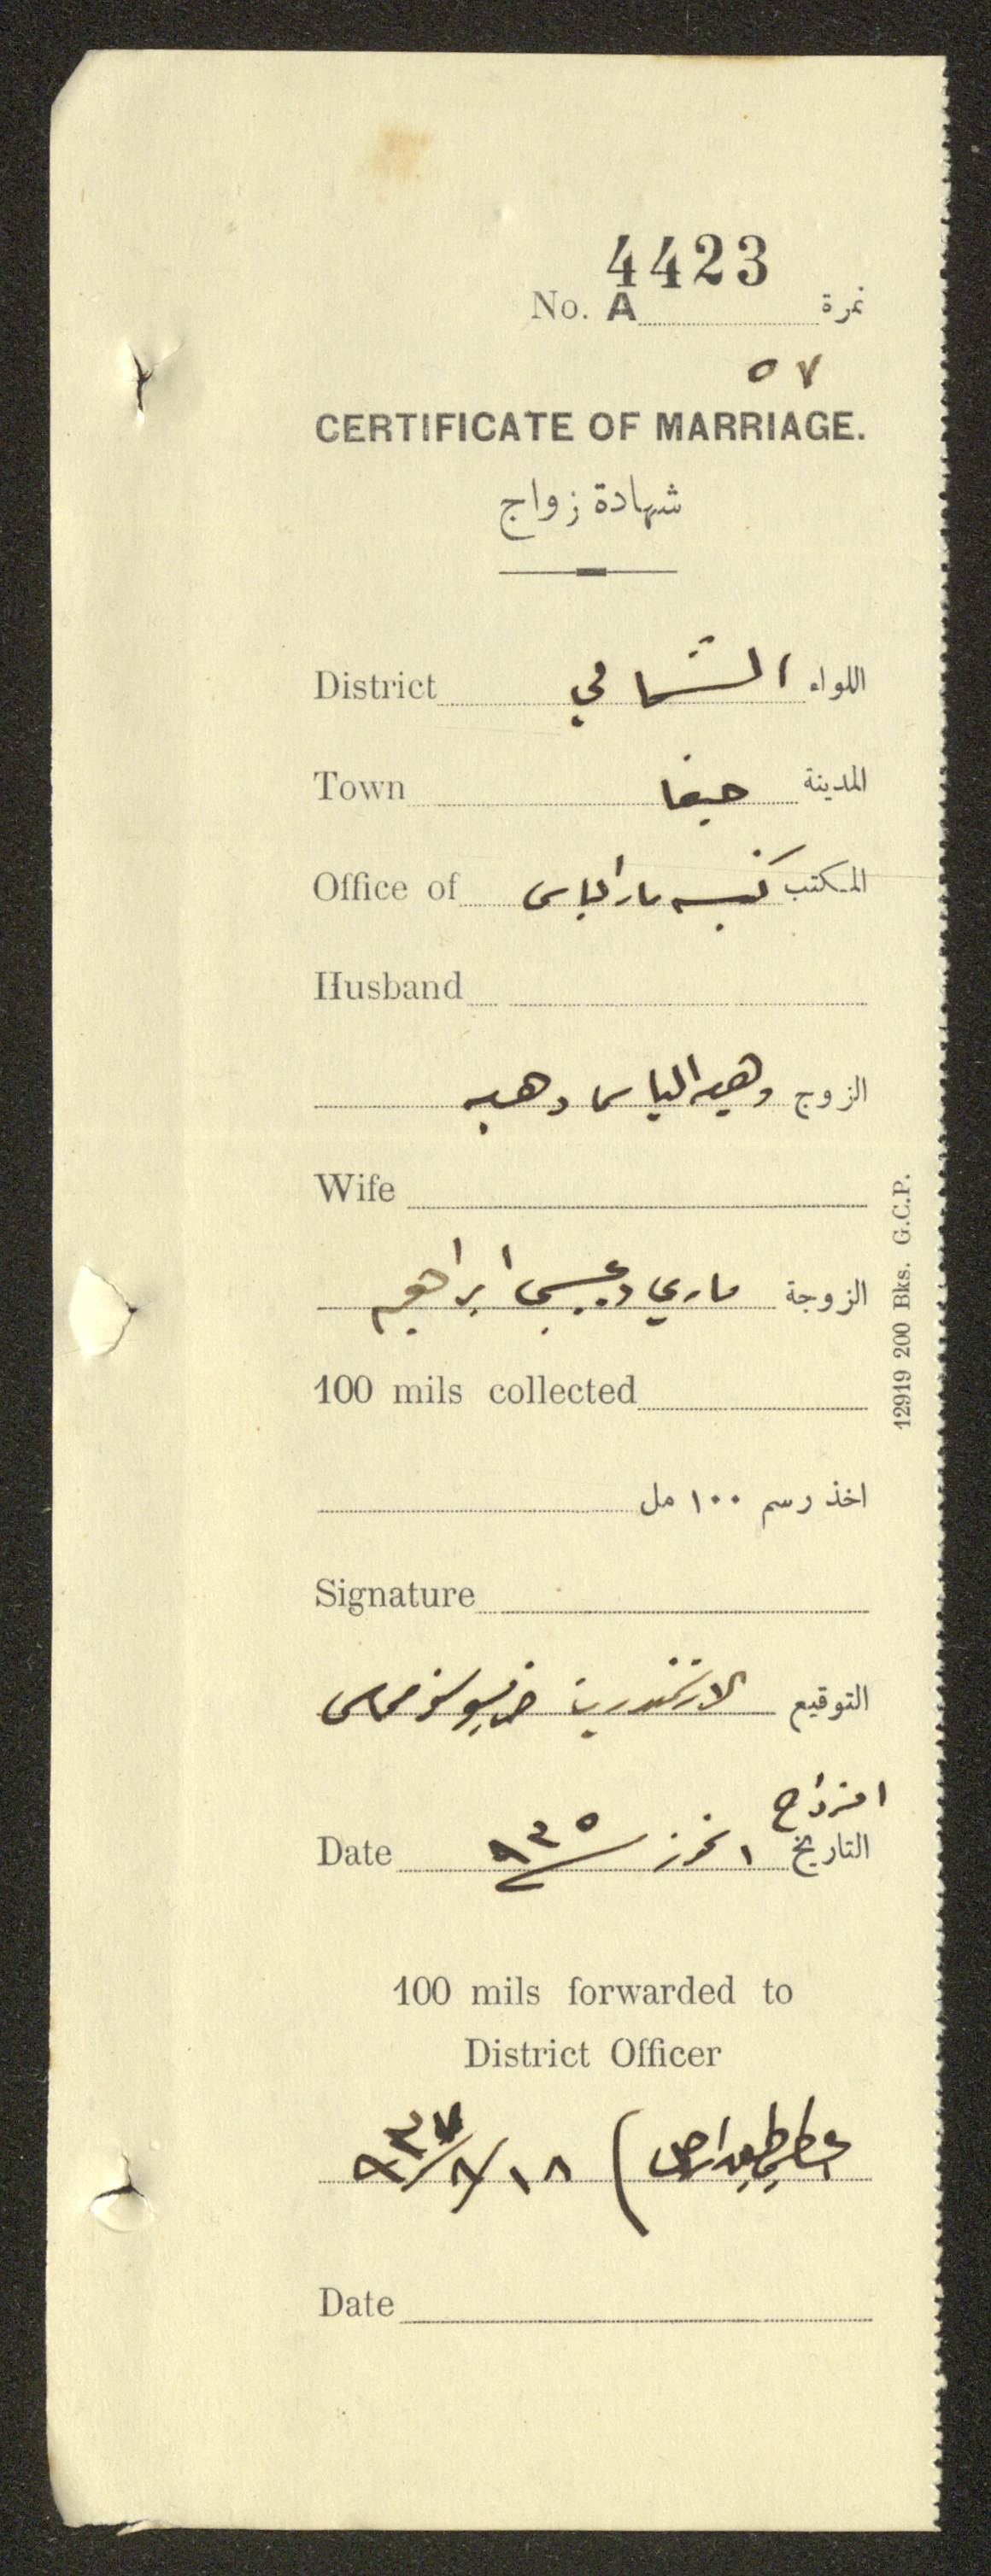 4423
No. A نمرة
٥٧
CERTIFICATE OF MARRIAGE.
شهادة زواج
District الشمالي اللواء
Town حيفا المدينة
Office of كنيسة مار الياس المكتب
Husband
الزوج وهبه الياس وهبه
Wife
الزوجة ماري دعيبس ابراهيم
100 mils collected
اخذ رسم ١٠٠ مل
Signature
التوقيع الارشمندريت
Date ١ تموز ٩٣٥ التاريخ
100 mils forwarded to
District Officer
١٨/٨/٩٣٧
Date
12919 200 Bks. G.C.P.